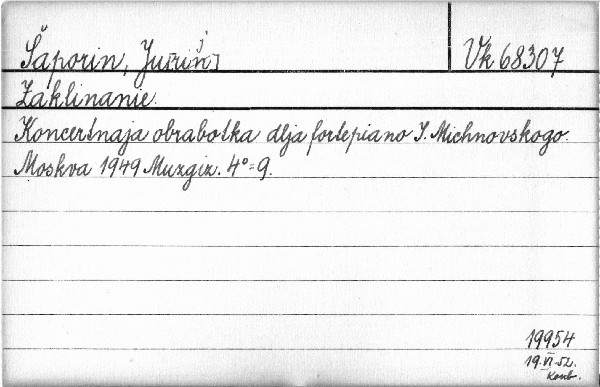 Šaporin, Ju[rij] Vk 68307
Zaklinanie.
Koncertnaja obrabotka dlja fortepiano I. Michnovskogo.
Moskva 1949 Muzgiz. 4°-9.
19954
19.VI.52.